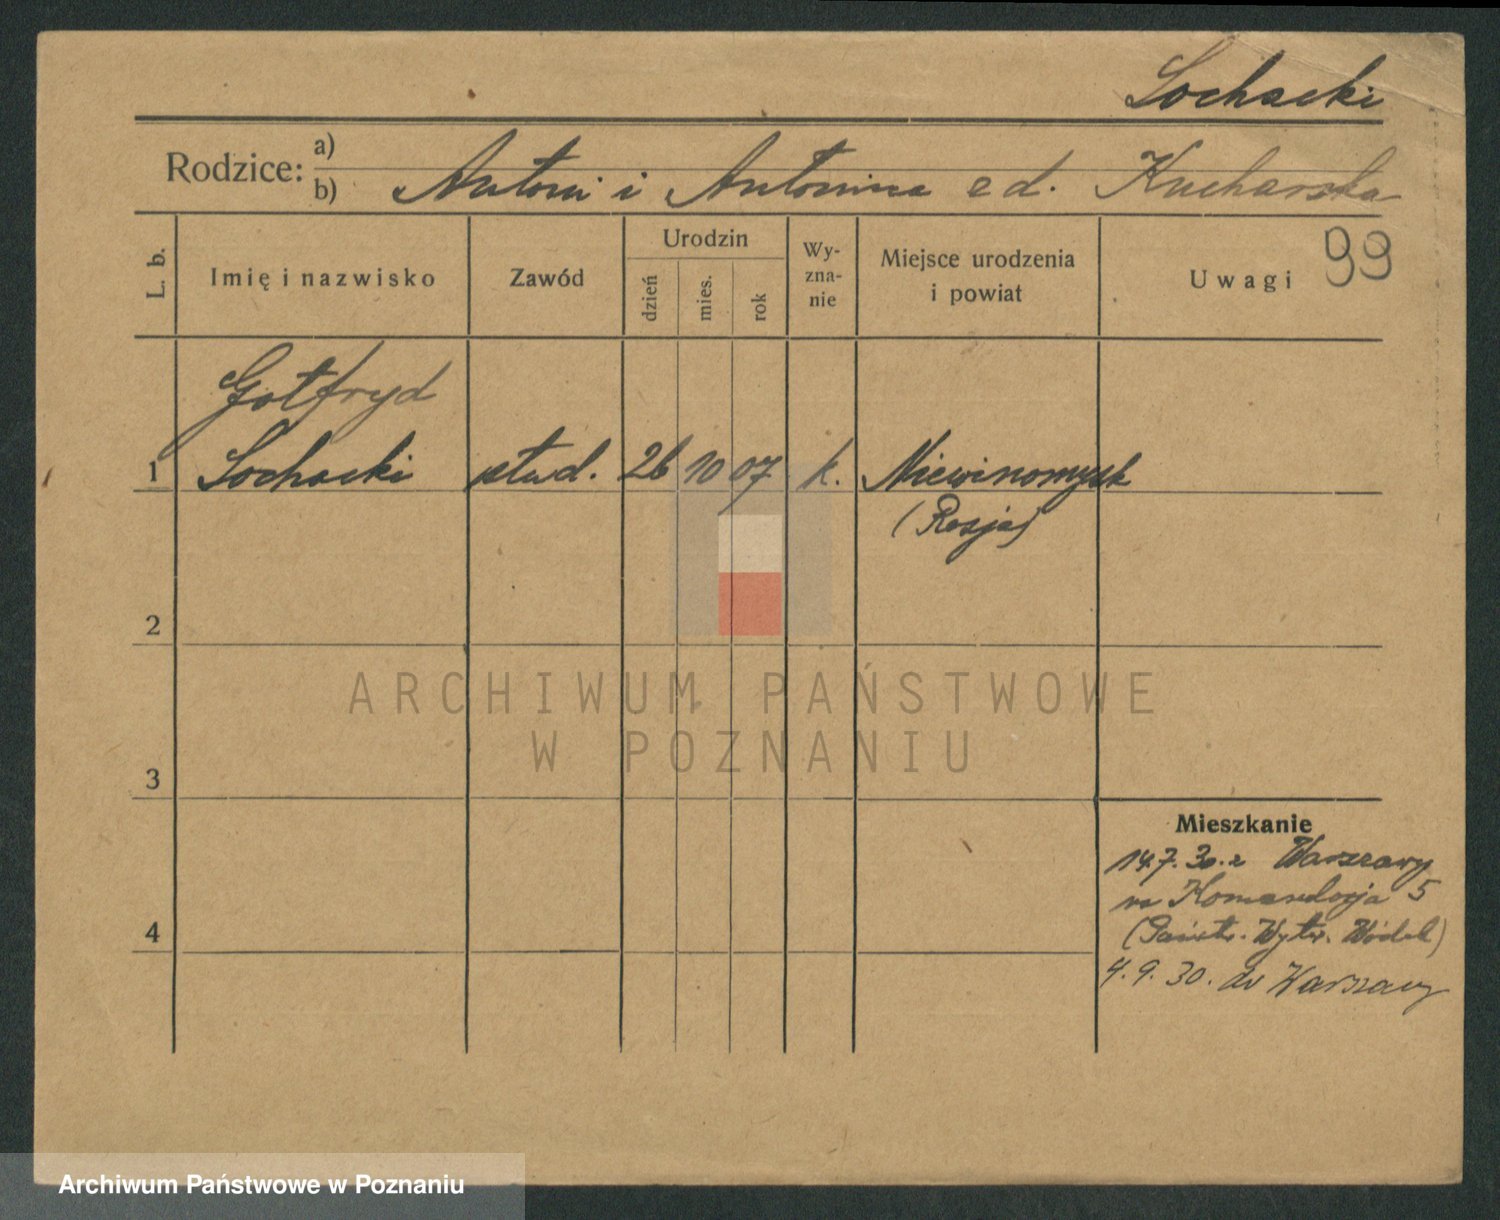 Sochacki
Rodzice: a)
b) Antoni i Antonina z d. Kucharska
99
L. b.
Imię i nazwisko
Zawód
Urodzin
dzień
mies.
rok
Wy-
zna-
nie
Miejsce urodzenia
i powiat
Uwagi
Gotfryd
1 Sochacki stud. 26 10 07 k. Niewinomysk
(Rosja)
2
3
4
Mieszkanie
14.7.30. z Warszawy
na Komandorja 5
(Państw. Wytw. Wódek)
4.9.30. do Warszawy
ARCHIWUM PAŃSTWOWE
W POZNANIU
Archiwum Państwowe w Poznaniu